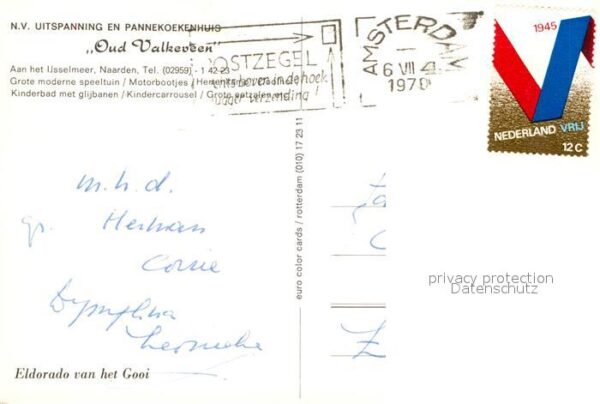 N.V. UITSPANNING EN PANNEKOEKENHUIS
„Oud Valkeveen”
Aan het IJsselmeer, Naarden, Tel. (02959) - 1 42 23
Grote moderne speeltuin / Motorbootjes /
Kinderbad met glijbanen / Kindercarrousel / Grote eetzalen
OSTZEGEL
boven in de hoek
verzending!
AMSTERDAM
6 VII
1970
1945
NEDERLAND VRIJ
12 C
m.h.d.
gr. Herman
Corrie
Dymphna
euro color cards / rotterdam (010) 17 23 11
privacy protection
Datenschutz
Eldorado van het Gooi